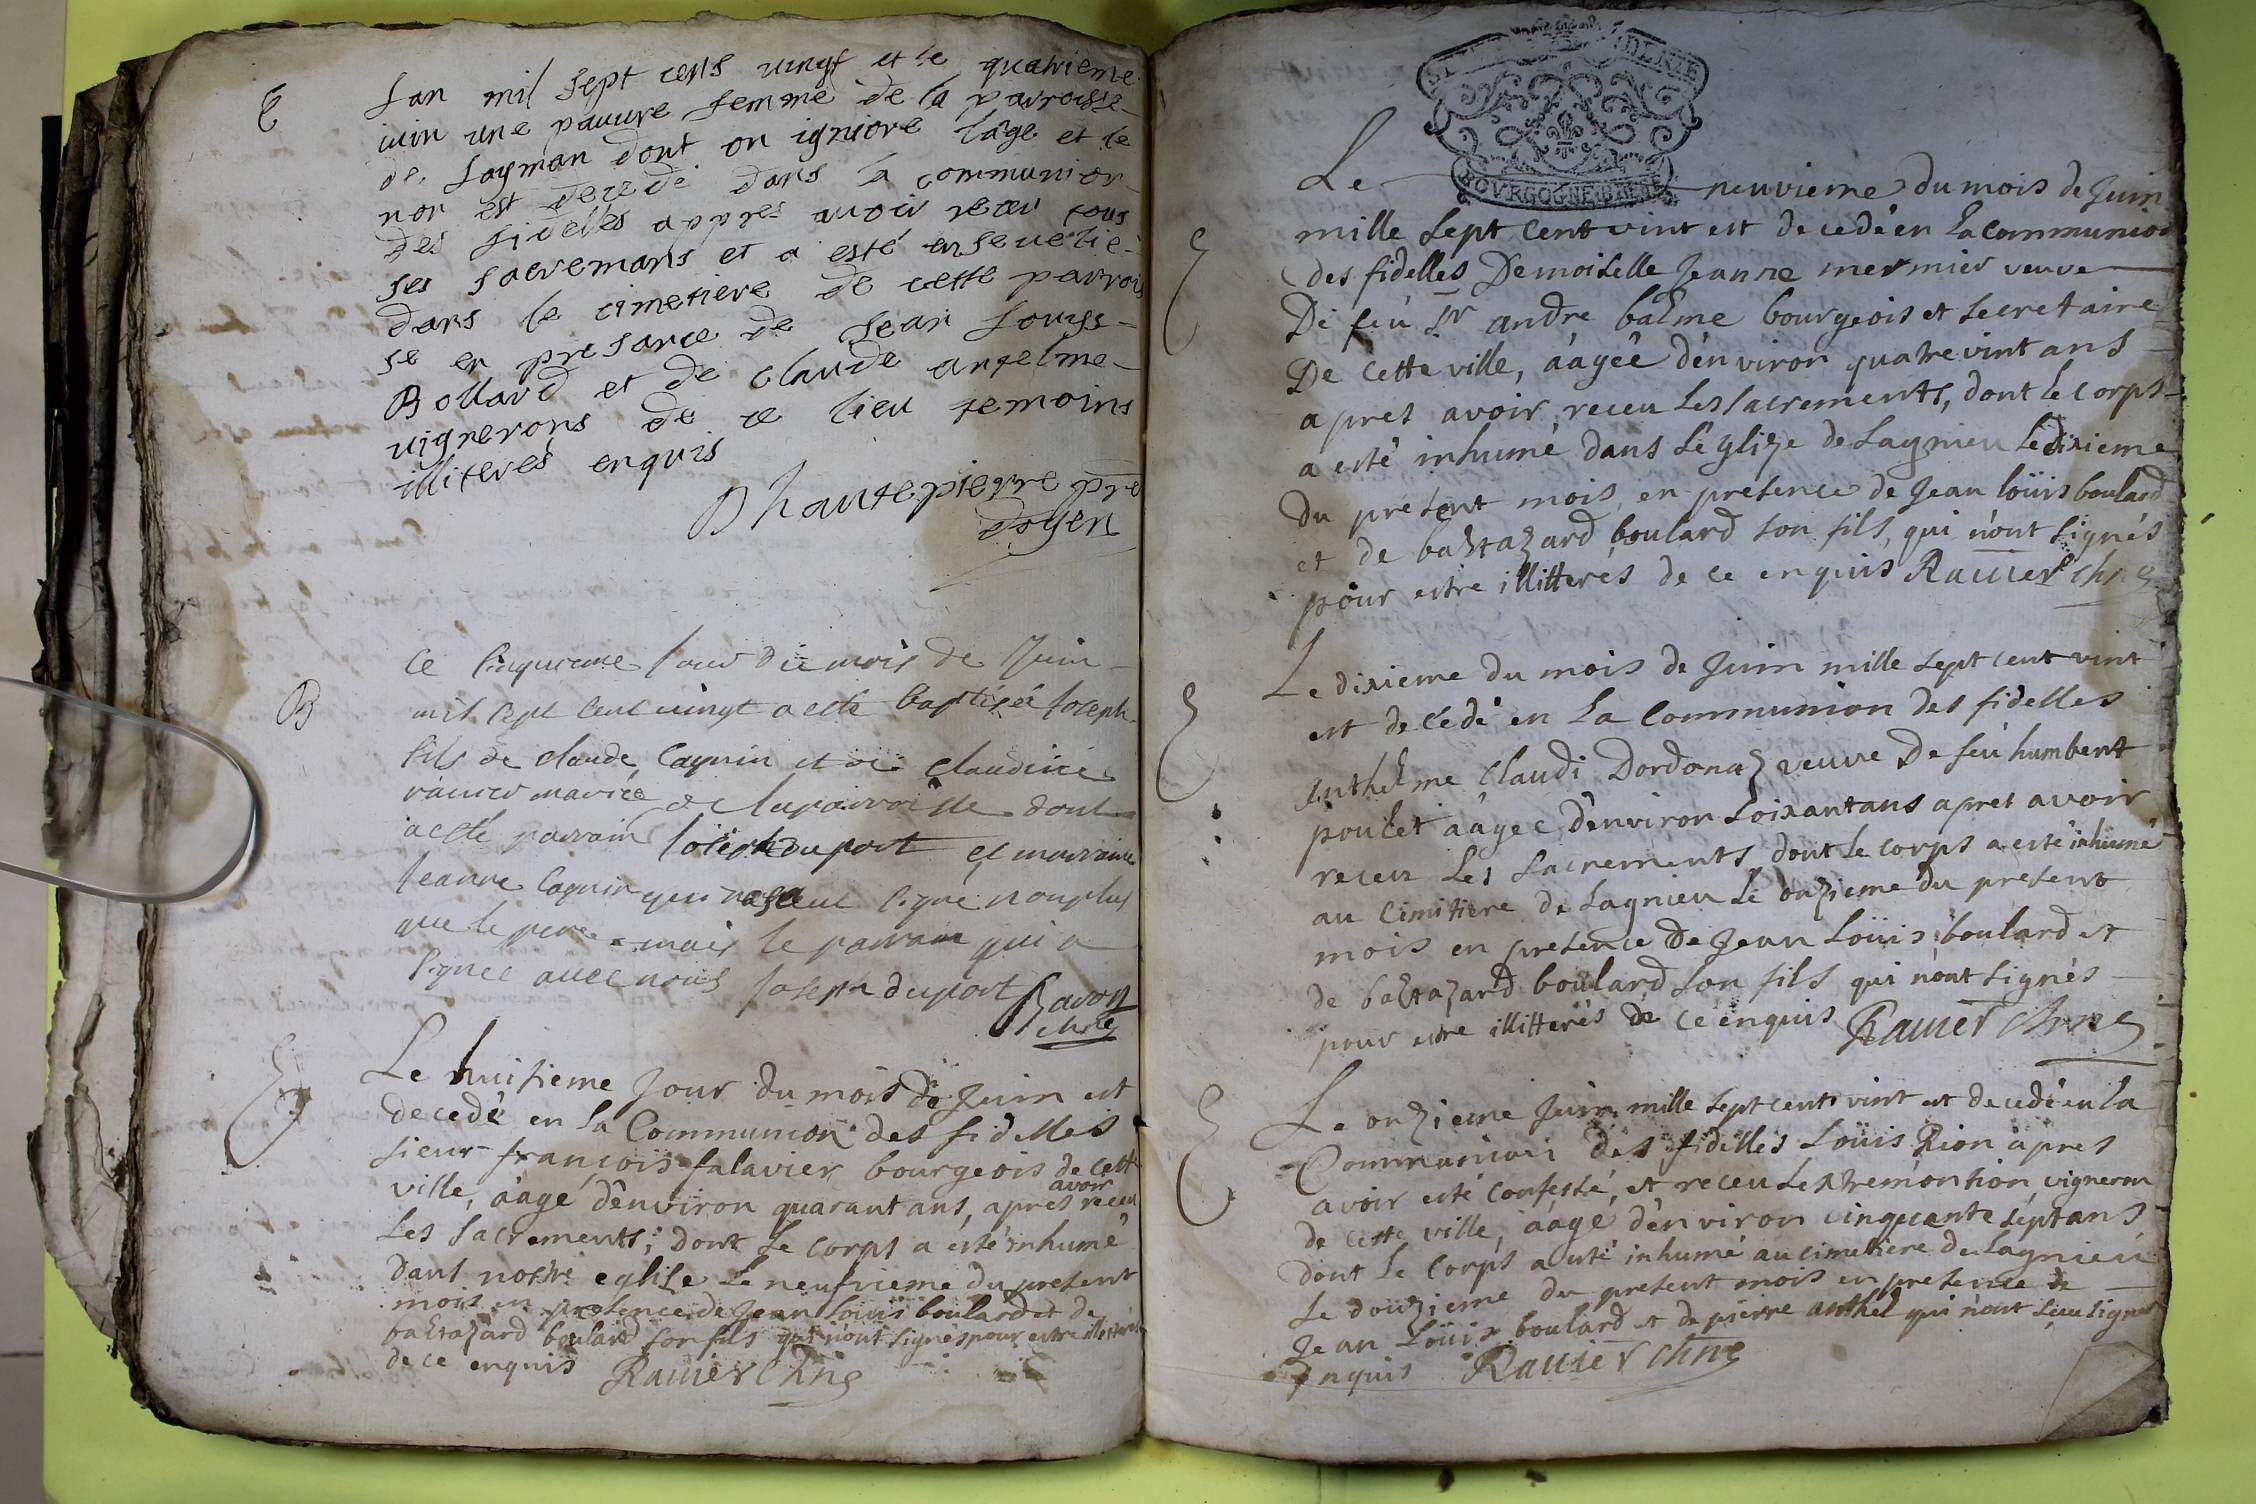 E
Lan mil sept cens vingt et le quatrieme
iuin une pauvre femme de la parroisse
de Layman dont on igniore lage et le
non est decedé dans la communion
des fidelles appres avoir receu tous
ses sacremans et a esté ensevelie
dans le cimetiere de cette parrois
se en presance de Jean Louiss
Bollard et de Claude anselme
vignerons de ce lieu temoins
illiterés enquis
Dhautepierre pre
doyen
B
Le cinquieme jour du mois de Juin
mil sept cent vingt a esté baptisé Joseph
fils de claude Cagnin et de claudine
ravier mariée de la parroisse dont
a esté parrain Joseph duport et marraine
Jeanne Cagnin qui n'a sceu signé nonplus
que le pere mais le parrain qui a
signée avec nous Joseph duport Savoy
chne
E
Le huitieme Jour du mois de Juin est
decedé en la Communion des fidelles
sieur françois falavier bourgeois de cette
ville, aagé d'environ quarant ans, apres avoir receu
Les Sacrements; dont le corps a esté inhumé
dans nostre eglise Le neufvieme du present
mois en presence de Jean Louis boulard et de
baltazard boulard son fils qui n'ont signés pour estre illitterés
de ce enquis Ravier chne
Le neuvieme du mois de Juin
BOVRGOGNE BRESSE
E
mille sept cent vint est decedé en La Communion
des fidelles Demoiselle Jeanne mermier veuve
De feu Sr andre balme bourgeois et secretaire
De cette ville, aagée d'environ quatrevint ans
apres avoir receu les sacrements, dont le corps
a esté inhumé dans L'eglize de Lagnieu le dixieme
du present mois en presence de Jean loüis boulard
et de baltazard boulard son fils, qui n'ont signés
pour estre illitterés de ce enquis Ravier chne
E
Le dixieme du mois de Juin mille sept cent vint
est decedé en La Communion des fidelles
Anthelme Claudi Dordonaz veuve De feu humbert
poulet aagée d'environ soixantans apres avoir
receu Les Sacrements dont le corps a esté inhumé
au Cimitiere de Lagnieu le onzieme du present
mois en presence De Jean Loüis boulard et
de baltazard boulard son fils qui n'ont signés
pour estre illitterés de ce enquis Ravier chne
E
Le onzieme Juin mille sept cent vint est decedé en la
Communion des fidelles Loüis Rion apres
avoir esté confessé, et receu Lextremontion, vigneron
de cette ville, aagé d'environ cinquante sept ans
dont le Corps a esté inhumé au cimetiere de Lagnieu
le douzieme du present mois en presence de
Jean Loüis boulard et de pierre anthel qui n'ont sceu signer
Enquis Ravier chne